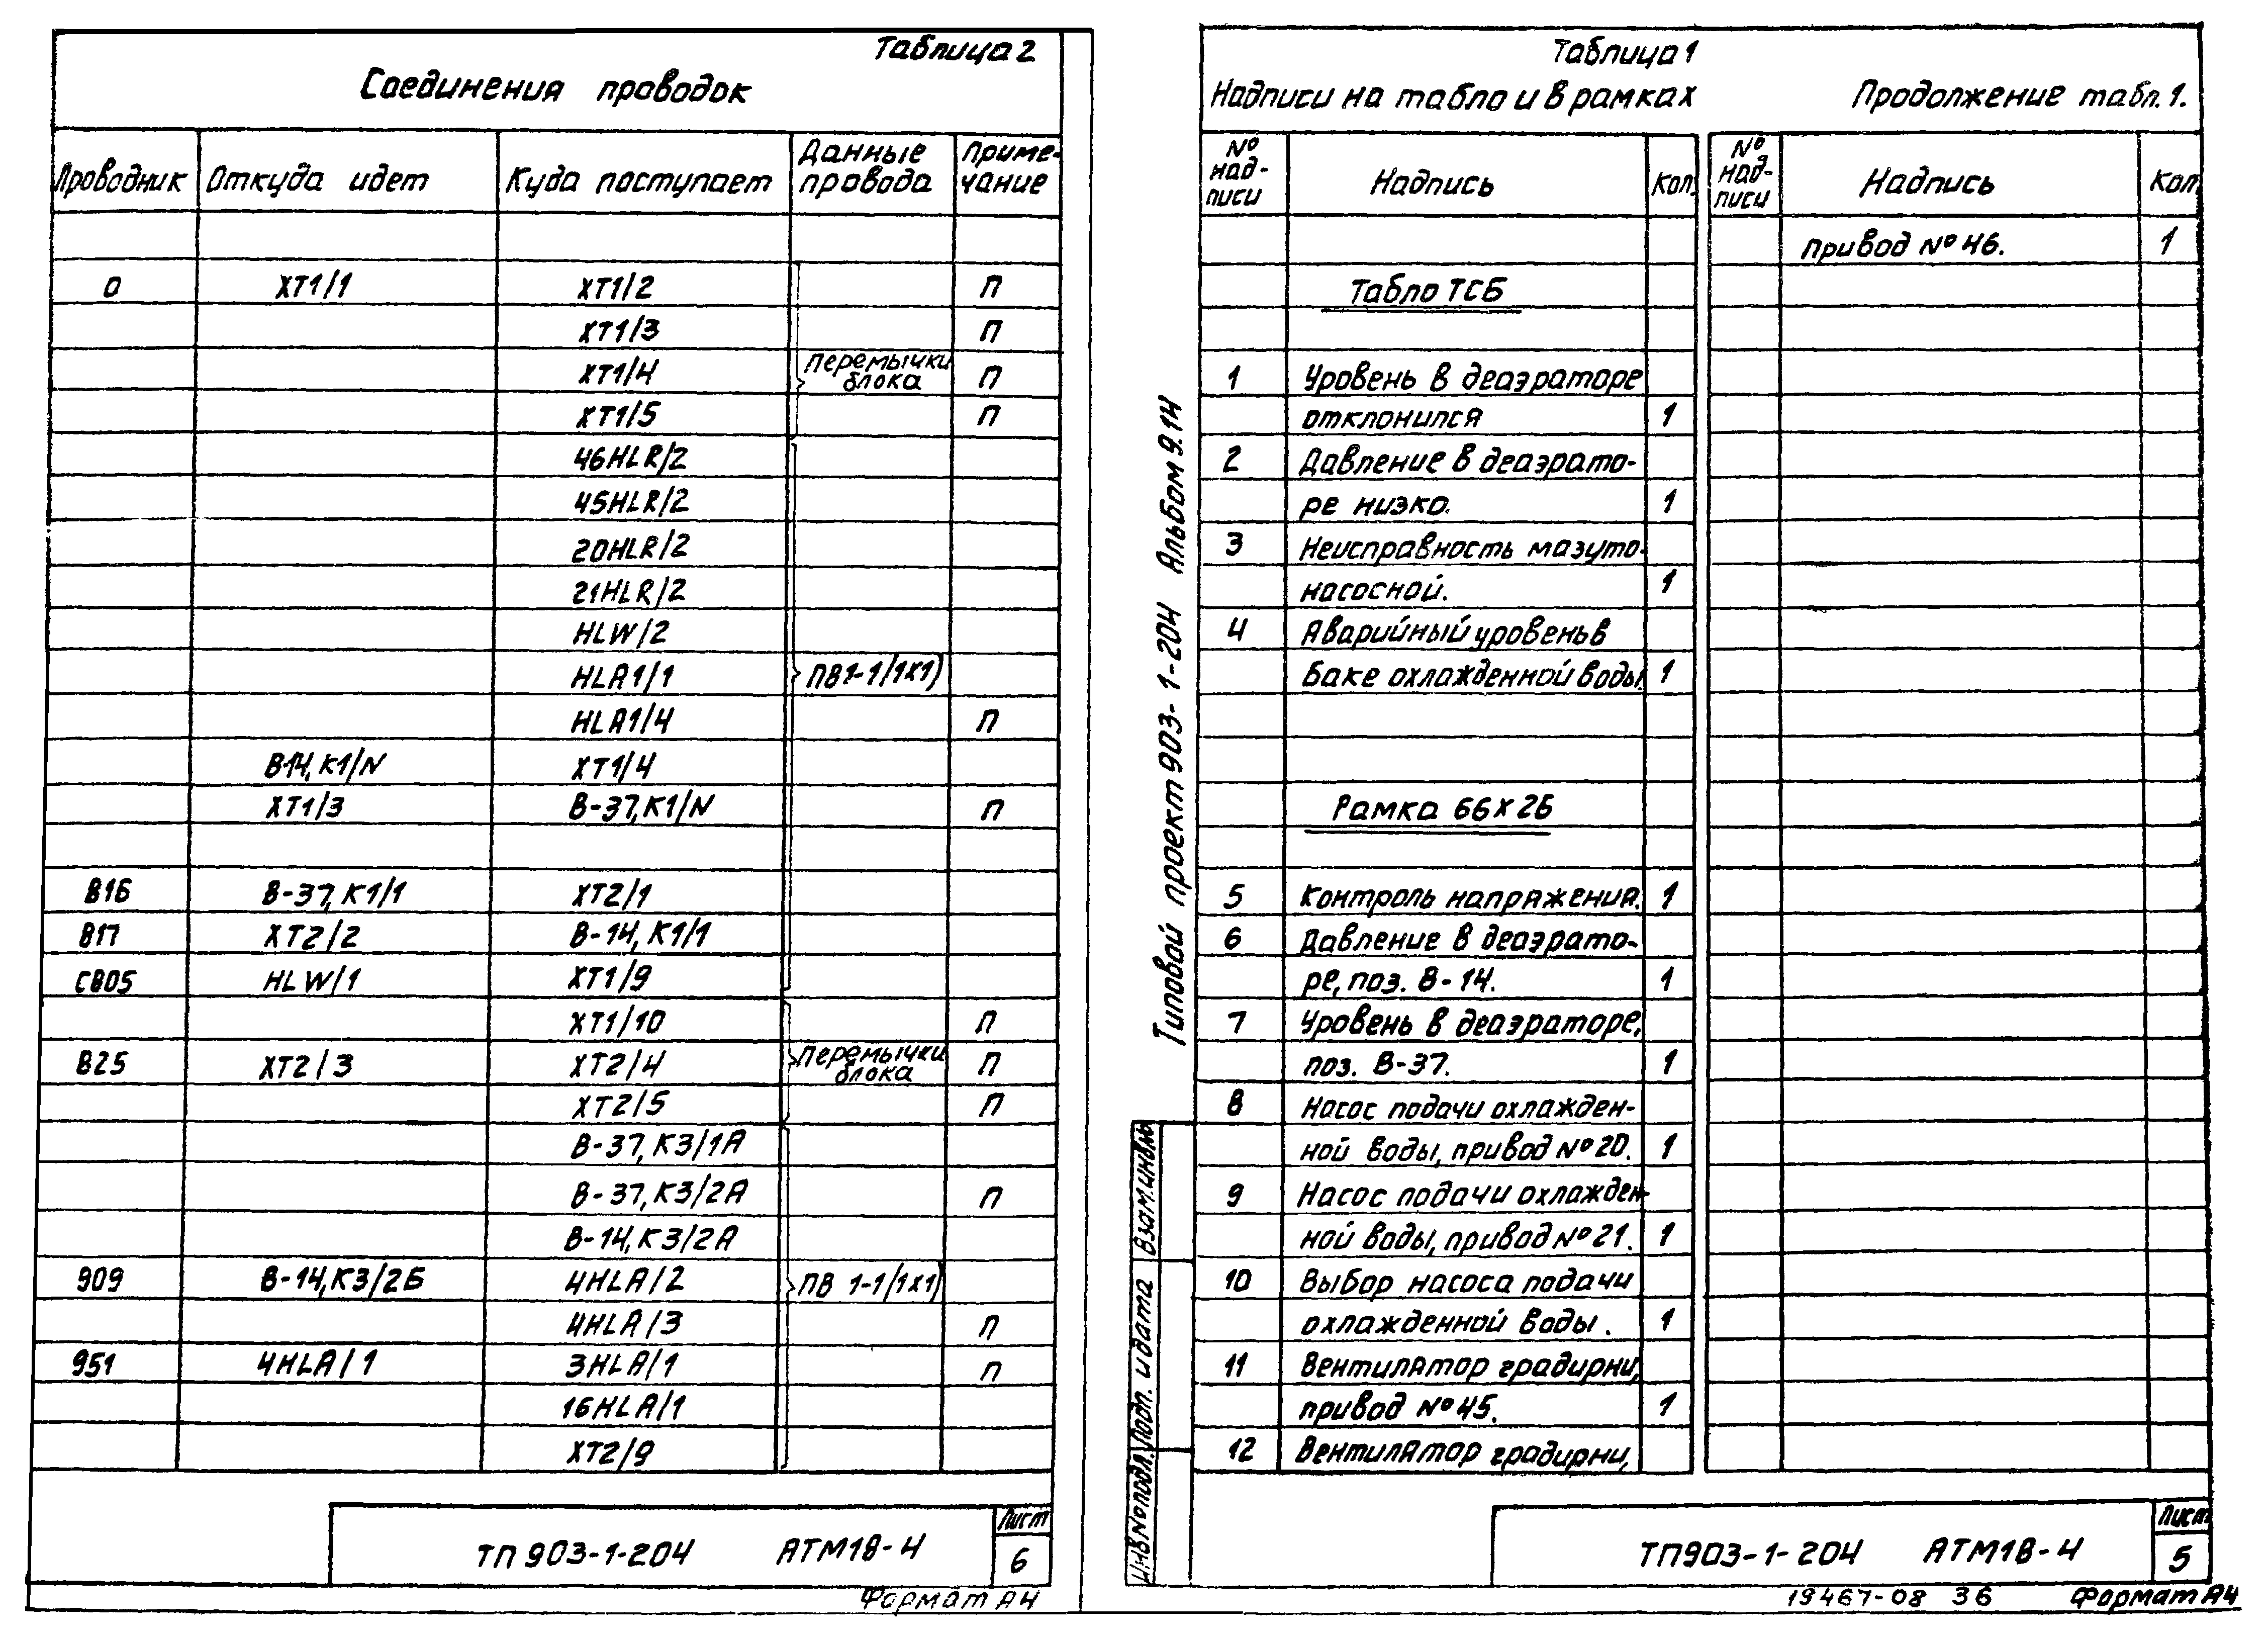 Таблица 2
Соединения проводок
Проводник Откуда идет Куда поступает Данные провода Примечание
0 XT1/1 XT1/2 П
XT1/3 П
XT1/4 перемычки блока П
XT1/5 П
46HLR/2
45HLR/2
20HLR/2
21HLR/2
HLW/2
HLA1/1 ПВ1-1/1х1)
HLA1/4 П
В14, К1/N XT1/4
XT1/3 В-37, К1/N П
816 В-37, К1/1 XT2/1
817 XT2/2 В-14, К1/1
С805 HLW/1 XT1/9
XT1/10 П
825 XT2/3 XT2/4 перемычки блока П
XT2/5 П
В-37, К3/1А
В-37, К3/2А П
В-14, К3/2А
909 В-14, К3/2Б 4HLA/2 ПВ 1-1/1х1)
4HLA/3 П
951 4HLA/1 3HLA/1 П
16HLA/1
XT2/9
ТП 903-1-204 АТМ18-4
Лист
6
Формат А4
Таблица 1
Надписи на табло и в рамках Продолжение табл. 1.
№ надписи Надпись Кол. № надписи Надпись Кол.
привод № 46. 1
Табло ТСБ
1 Уровень в деаэраторе
отклонился 1
2 Давление в деаэрато-
ре низко. 1
3 Неисправность мазуто-
насосной. 1
4 Аварийный уровень в
баке охлажденной воды. 1
Рамка 66х26
5 Контроль напряжения. 1
6 Давление в деаэрато-
ре, поз. В-14. 1
7 Уровень в деаэраторе,
поз. В-37. 1
8 Насос подачи охлажден-
ной воды, привод № 20. 1
9 Насос подачи охлажден-
ной воды, привод № 21. 1
10 Выбор насоса подачи
охлажденной воды. 1
11 Вентилятор градирни,
привод № 45. 1
12 Вентилятор градирни,
Типовой проект 903-1-204 Альбом 9.14
Взам.инв.№
Подп. и дата
Инв.№ подл.
ТП 903-1-204 АТМ18-4
Лист
5
19467-08 36 Формат А4